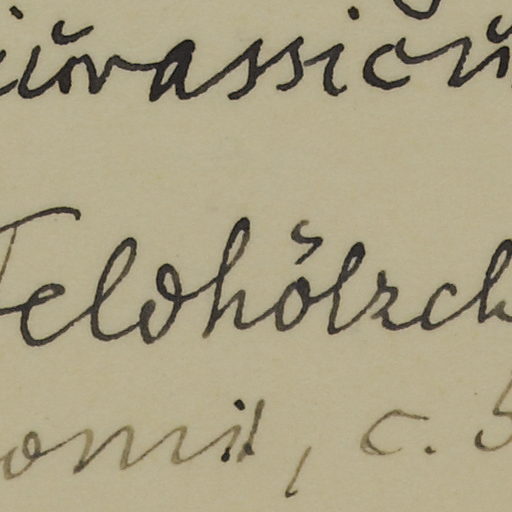 jurassicu
Feldhölzch
omit, c. 5